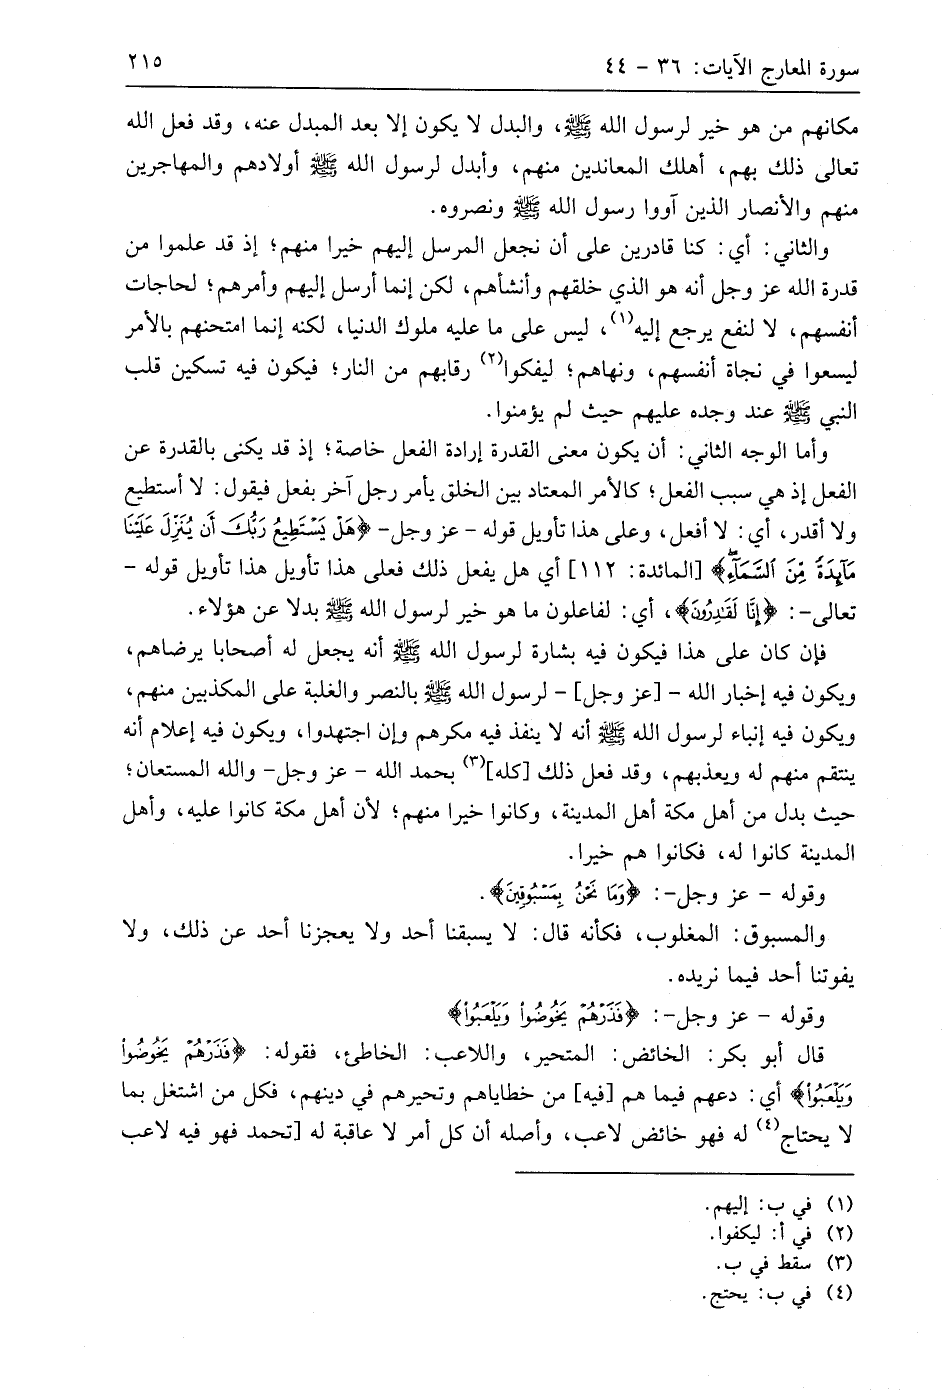 سورة المعارج الآيات: ٣٦ - ٤٤
٢١٥
مكانهم من هو خير لرسول الله ﷺ، والبدل لا يكون إلا بعد المبدل عنه، وقد فعل الله
تعالى ذلك بهم، أهلك المعاندين منهم، وأبدل لرسول الله ﷺ أولادهم والمهاجرين
منهم والأنصار الذين آووا رسول الله ﷺ ونصروه.
والثاني: أي: كنا قادرين على أن نجعل المرسل إليهم خيرا منهم؛ إذ قد علموا من
قدرة الله عز وجل أنه هو الذي خلقهم وأنشأهم، لكن إنما أرسل إليهم وأمرهم؛ لحاجات
أنفسهم، لا لنفع يرجع إليه(١)، ليس على ما عليه ملوك الدنيا، لكنه إنما امتحنهم بالأمر
ليسعوا في نجاة أنفسهم، ونهاهم؛ ليفكوا(٢) رقابهم من النار؛ فيكون فيه تسكين قلب
النبي ﷺ عند وجده عليهم حيث لم يؤمنوا.
وأما الوجه الثاني: أن يكون معنى القدرة إرادة الفعل خاصة؛ إذ قد يكنى بالقدرة عن
الفعل إذ هي سبب الفعل؛ كالأمر المعتاد بين الخلق يأمر رجل آخر بفعل فيقول: لا أستطيع
ولا أقدر، أي: لا أفعل، وعلى هذا تأويل قوله - عز وجل- ﴿هَلْ يَسْتَطِيعُ رَبُّكَ أَن يُنَزِّلَ عَلَيْنَا
مَآئِدَةً مِّنَ ٱلسَّمَآءِۖ﴾ [المائدة: ١١٢] أي هل يفعل ذلك فعلى هذا تأويل هذا تأويل قوله -
تعالى-: ﴿إِنَّا لَقَٰدِرُونَ﴾، أي: لفاعلون ما هو خير لرسول الله ﷺ بدلا عن هؤلاء.
فإن كان على هذا فيكون فيه بشارة لرسول الله ﷺ أنه يجعل له أصحابا يرضاهم،
ويكون فيه إخبار الله - [عز وجل] - لرسول الله ﷺ بالنصر والغلبة على المكذبين منهم،
ويكون فيه إنباء لرسول الله ﷺ أنه لا ينفذ فيه مكرهم وإن اجتهدوا، ويكون فيه إعلام أنه
ينتقم منهم له ويعذبهم، وقد فعل ذلك [كله](٣) بحمد الله - عز وجل- والله المستعان؛
حيث بدل من أهل مكة أهل المدينة، وكانوا خيرا منهم؛ لأن أهل مكة كانوا عليه، وأهل
المدينة كانوا له، فكانوا هم خيرا.
وقوله - عز وجل-: ﴿وَمَا نَحْنُ بِمَسْبُوقِينَ﴾.
والمسبوق: المغلوب، فكأنه قال: لا يسبقنا أحد ولا يعجزنا أحد عن ذلك، ولا
يفوتنا أحد فيما نريده.
وقوله - عز وجل-: ﴿فَذَرْهُمْ يَخُوضُوا۟ وَيَلْعَبُوا۟﴾
قال أبو بكر: الخائض: المتحير، واللاعب: الخاطئ، فقوله: ﴿فَذَرْهُمْ يَخُوضُوا۟
وَيَلْعَبُوا۟﴾ أي: دعهم فيما هم [فيه] من خطاياهم وتحيرهم في دينهم، فكل من اشتغل بما
لا يحتاج(٤) له فهو خائض لاعب، وأصله أن كل أمر لا عاقبة له [تحمد فهو فيه لاعب
(١) في ب: إليهم.
(٢) في أ: ليكفوا.
(٣) سقط في ب.
(٤) في ب: يحتج.